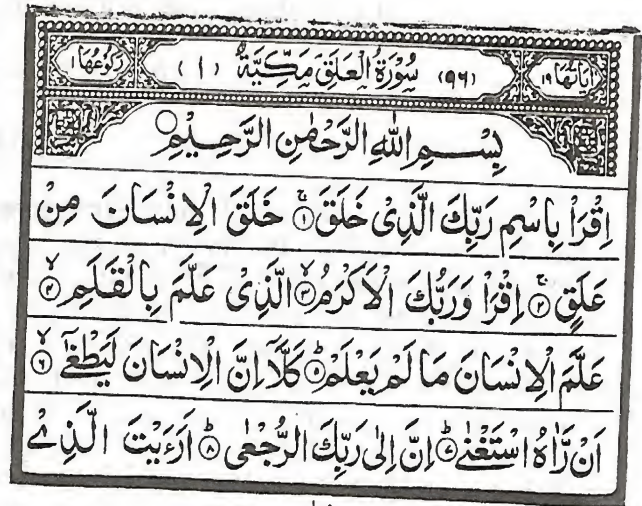 اٰیَاتُهَا ۱۹ (۹۶) سُوْرَةُ الْعَلَقِ مَكِّیَّةٌ (۱) رُكُوْعُهَا ۱
بِسْمِ اللّٰهِ الرَّحْمٰنِ الرَّحِیْمِ
اِقْرَاْ بِاسْمِ رَبِّكَ الَّذِیْ خَلَقَ ۚ۝۱ خَلَقَ الْاِنْسَانَ مِنْ
عَلَقٍ ۚ۝۲ اِقْرَاْ وَرَبُّكَ الْاَكْرَمُ ۙ۝۳ الَّذِیْ عَلَّمَ بِالْقَلَمِ ۙ۝۴
عَلَّمَ الْاِنْسَانَ مَا لَمْ یَعْلَمْ ؕ۝۵ كَلَّاۤ اِنَّ الْاِنْسَانَ لَیَطْغٰۤی ۙ۝۶
اَنْ رَّاٰهُ اسْتَغْنٰی ؕ۝۷ اِنَّ اِلٰی رَبِّكَ الرُّجْعٰی ؕ۝۸ اَرَءَیْتَ الَّذِیْ